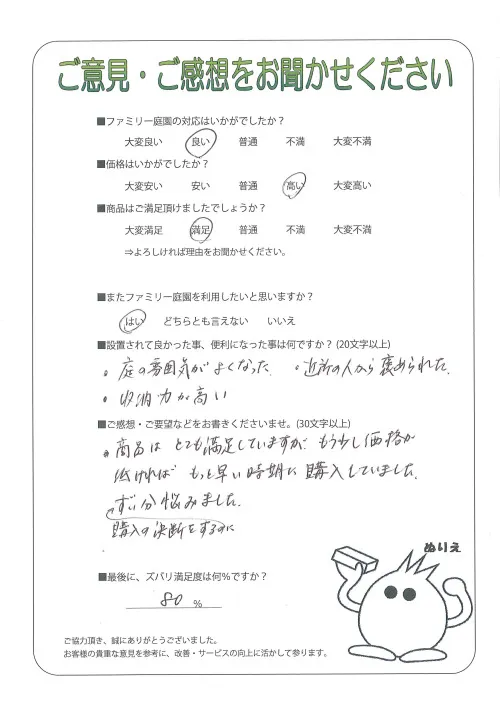 ご意見・ご感想をお聞かせください
■ファミリー庭園の対応はいかがでしたか？
大変良い 良い 普通 不満 大変不満
■価格はいかがでしたか？
大変安い 安い 普通 高い 大変高い
■商品はご満足頂けましたでしょうか？
大変満足 満足 普通 不満 大変不満
⇒よろしければ理由をお聞かせください。
■またファミリー庭園を利用したいと思いますか？
はい どちらとも言えない いいえ
■設置されて良かった事、便利になった事は何ですか？(20文字以上)
・庭の雰囲気がよくなった ・近所の人から褒められた.
・収納力が高い
■ご感想・ご要望などをお書きくださいませ。(30文字以上)
・商品は とても満足していますが、もう少し価格が
低ければ もっと早い時期に購入していました.
ずい分悩みました.
購入の決断をするのに
ぬりえ
■最後に、ズバリ満足度は何%ですか？
80 %
ご協力頂き、誠にありがとうございました。
お客様の貴重な意見を参考に、改善・サービスの向上に活かして参ります。